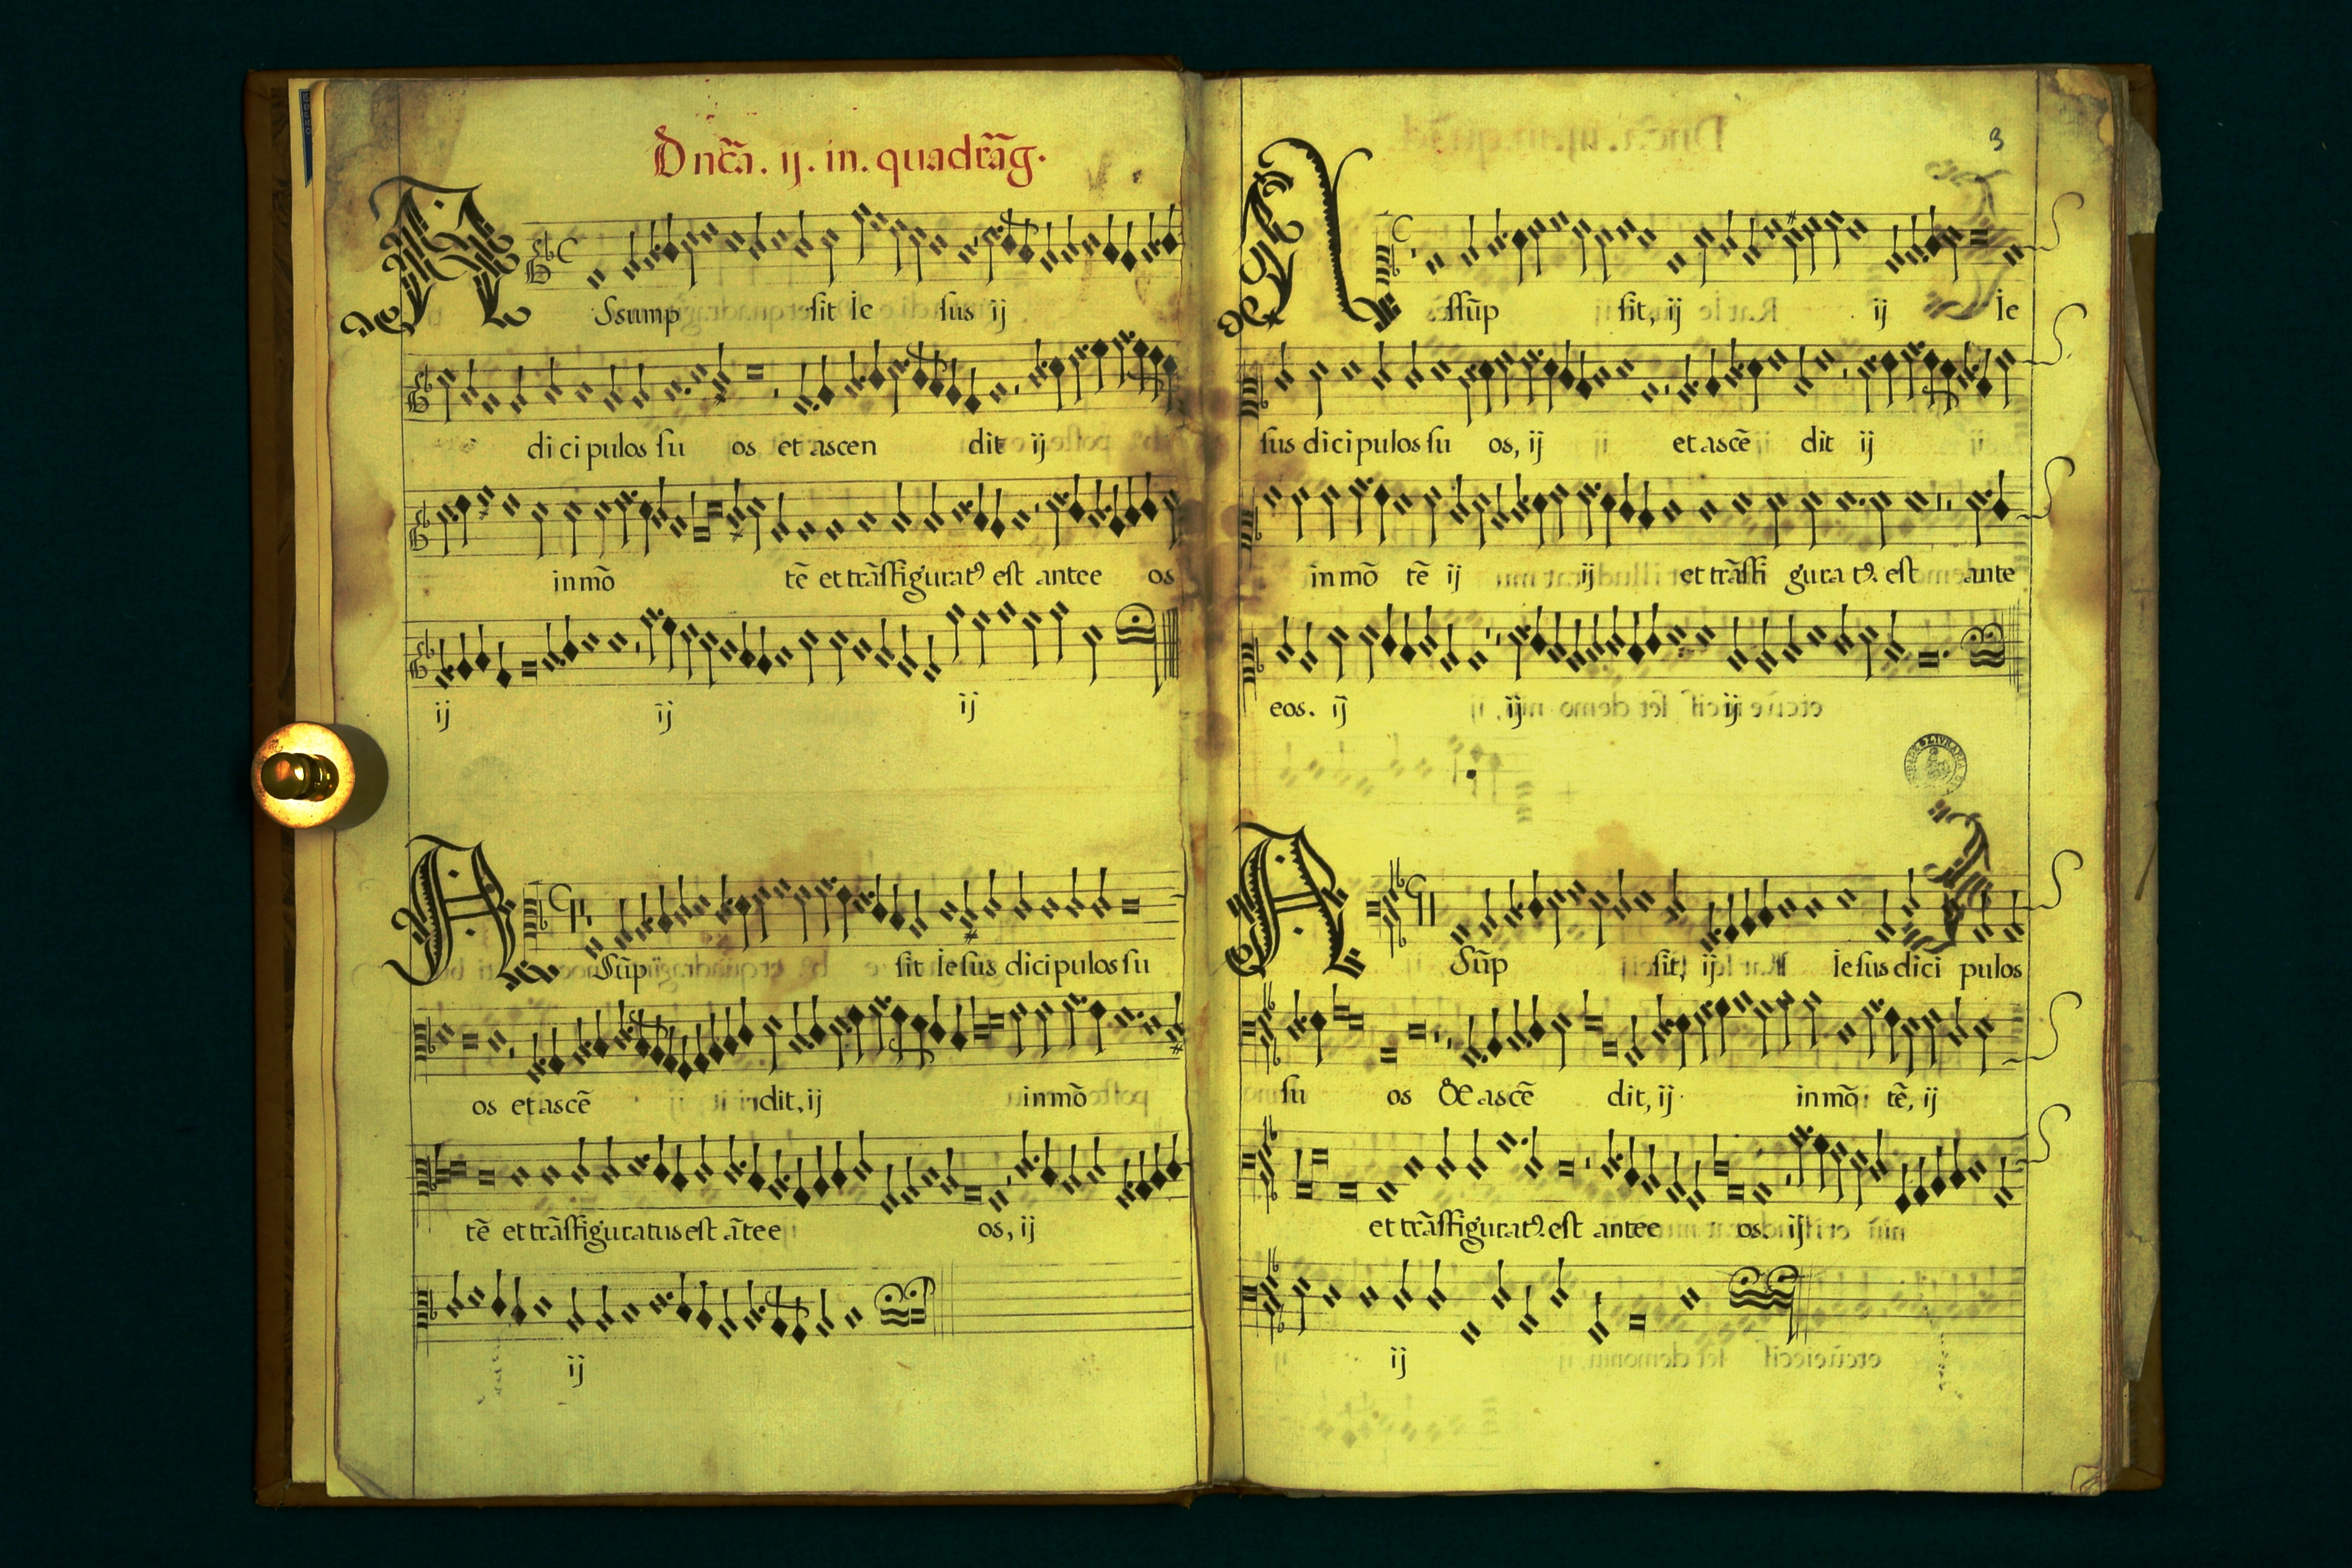 Dnc̃a. ij. in. quadrãg.
Assump sit ie sus ij
di ci pulos su os et ascen dit ij
in mõ tẽ et trãsfiguratꝰ est ante e os
ij ij ij
Assũp sit Iesus dicipulos su
os et ascẽ dit, ij in mõ
tẽ et trãsfiguratus est ãte e os, ij
ij
3
Assũp sit, ij ij ie
sus dicipulos su os, ij et ascẽ dit ij
in mõ tẽ ij ij et trãsfi gura tꝰ. est ante
eos. ij ij ij
Asũp sit, ij Iesus dici pulos
su os & ascẽ dit, ij in mõ tẽ, ij
et trãsfiguratꝰ. est ante e os. ij
ij